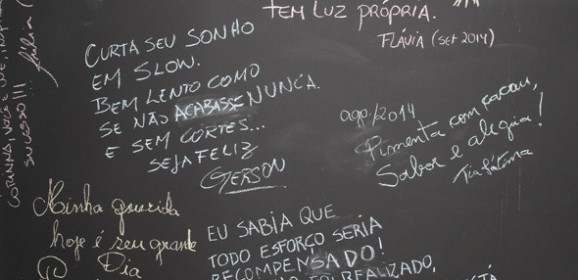 TEM LUZ PRÓPRIA.
FLÁVIA (SET 2014)
CURTA SEU SONHO
EM SLOW.
BEM LENTO COMO
SE NÃO ACABASSE NUNCA.
E SEM CORTES...
SEJA FELIZ
GERSON
ago/2014
Pimenta com cacau,
Sabor e alegria!
Tia Fátima
SUCESSO!!!
Minha querida
hoje é seu grande
Dia
EU SABIA QUE
TODO ESFORÇO SERIA
RECOMPENSADO!
FOI REALIZADO,